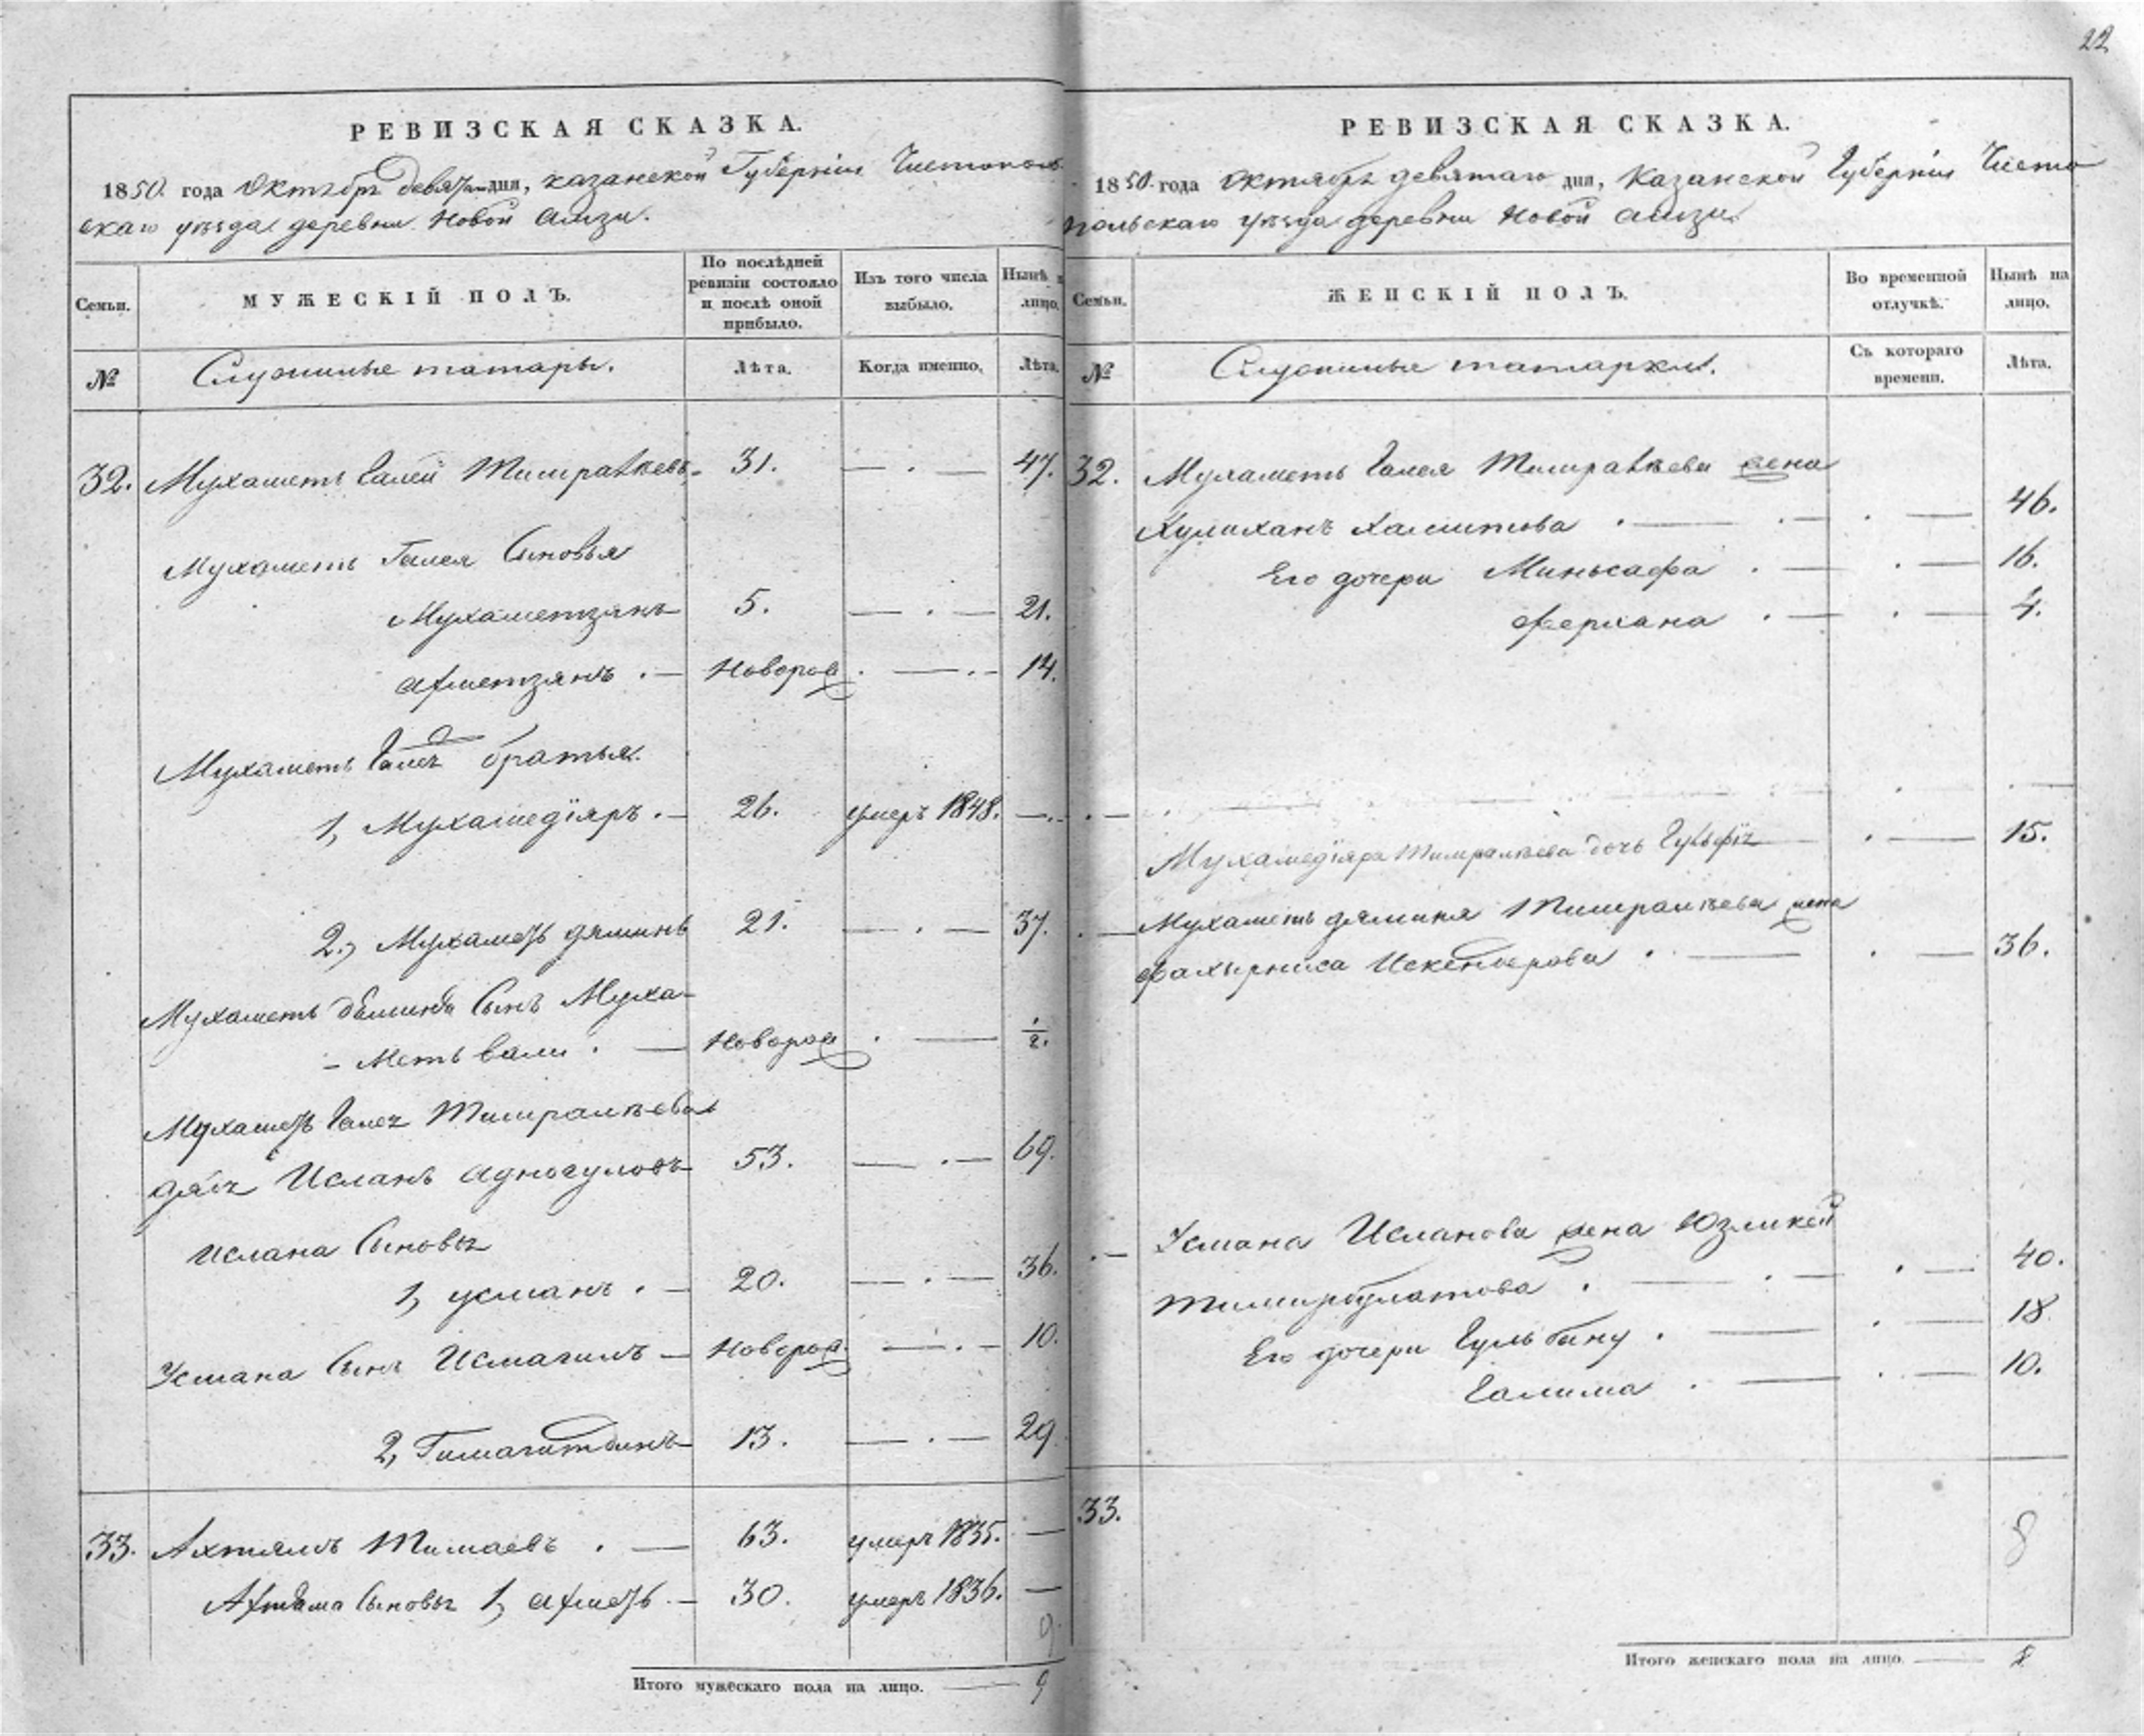 22
РЕВИЗСКАЯ СКАЗКА.
1850. года Октября девятаго дня, Казанской Губернiи Чистополь
скаго уѣзда деревни Новой Амзи.
Семьи.
МУЖЕСКIЙ ПОЛЪ.
По послѣдней ревизiи состояло и послѣ оной прибыло.
Изъ того числа выбыло.
Нынѣ на лицо.
№
Служилые татары.
Лѣта.
Когда именно.
Лѣта.
32. Мухаметь Галей Тимралѣевъ 31. — . — 47.
Мухаметь Галея Сыновья
Мухаметзянъ 5. — . — 21.
Ахметзянъ . — Новорож . — . . - 14.
Мухаметь Галея братья
1, Мухамедiяръ . — 26. умеръ 1848. —
2., Мухаметь дяминъ 21. — . — 37.
Мухаметь дямина Сынъ Муха-
- меть вали . — Новорож . — 1/2.
Мухаметь Галея Тимралѣева
дядя Исланъ 53. — . — 69.
Ислана Сыновья
1, Усманъ . — 20. — . — 36.
Усмана Сынъ Исмагилъ — Новорож. — . - 10.
2, 13. — . — 29
33. Ахтямъ Тимаевъ . — 63. умеръ 1835. —
Ахтяма Сыновья 1, Ахметь . — 30. умеръ 1836. —
9
Итого мужескаго пола на лицо. — 9
РЕВИЗСКАЯ СКАЗКА.
1850. года Октября девятаго дня, Казанской Губернiи Чисто
польскаго уѣзда деревни Новой Амзи
Семьи.
ЖЕНСКIЙ ПОЛЪ.
Во временной отлучкѣ.
Нынѣ на лицо.
№
Служилые татарки.
Съ котораго времени.
Лѣта.
32. Мухаметь Галея Тимралѣева жена
Хулихань Халитова . — . — . — 46.
Его дочери Миньсафа . — . — 16.
Ферхана . — . — 4.
Мухамедiяра Тимралѣева дочь — . — 15.
Мухаметь дямина Тимралѣева жена
Фахърниса Искендерова . — . — 36.
Усмана Исланова жена Юзликей
Тимирбулатова . — . — . — 40.
Его дочери Гульбану . — . — 18
Галима . — . — 10.
33.
8
Итого женскаго пола на лицо. — 8